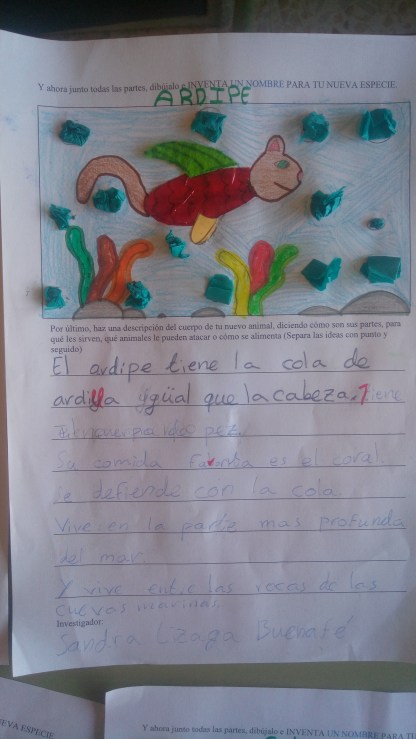 Y ahora junto todas las partes, dibújalo e INVENTA UN NOMBRE PARA TU NUEVA ESPECIE.
ARDIPE
Por último, haz una descripción del cuerpo de tu nuevo animal, diciendo cómo son sus partes, para
qué les sirven, qué animales le pueden atacar o cómo se alimenta (Separa las ideas con punto y
seguido)
El ardipe tiene la cola de
ardilla ÿgüal que la cabeza. Tiene
pez.
Su comida favorita es el coral
Se defiende con la cola
Vive en la parte mas profunda
del mar
Y vive entre las rocas de las
cuevas marinas.
Investigador:
Sandra Lizaga Buenafé
NUEVA ESPECIE
Y ahora junto todas las partes, dibújalo e INVENTA UN NOMBRE PARA TU